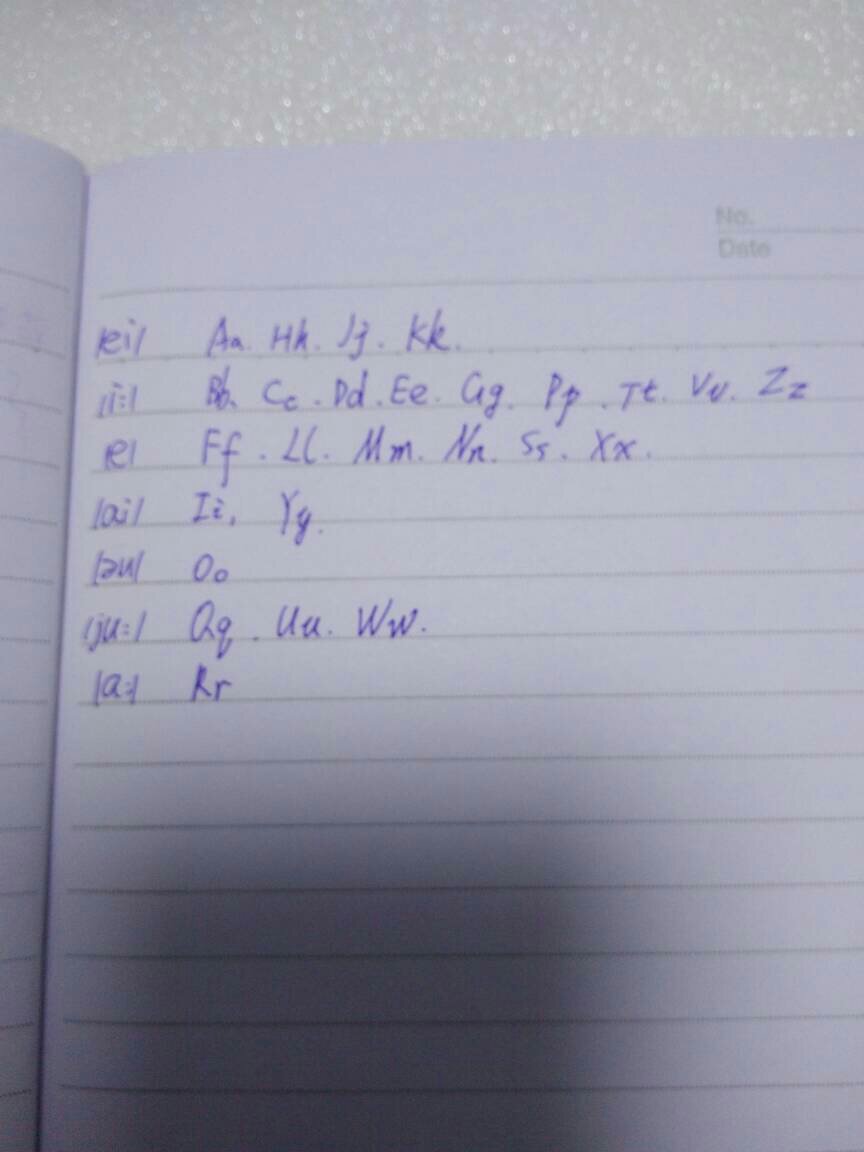 No.
Date
/ei/ Aa. Hh. Jj. Kk.
/i:/ Bb. Cc. Dd. Ee. Gg. Pp. Tt. Vv. Zz
/e/ Ff. Ll. Mm. Nn. Ss. Xx.
/ai/ Ii, Yy.
/əu/ Oo
/ju:/ Qq. Uu. Ww.
/a:/ Rr